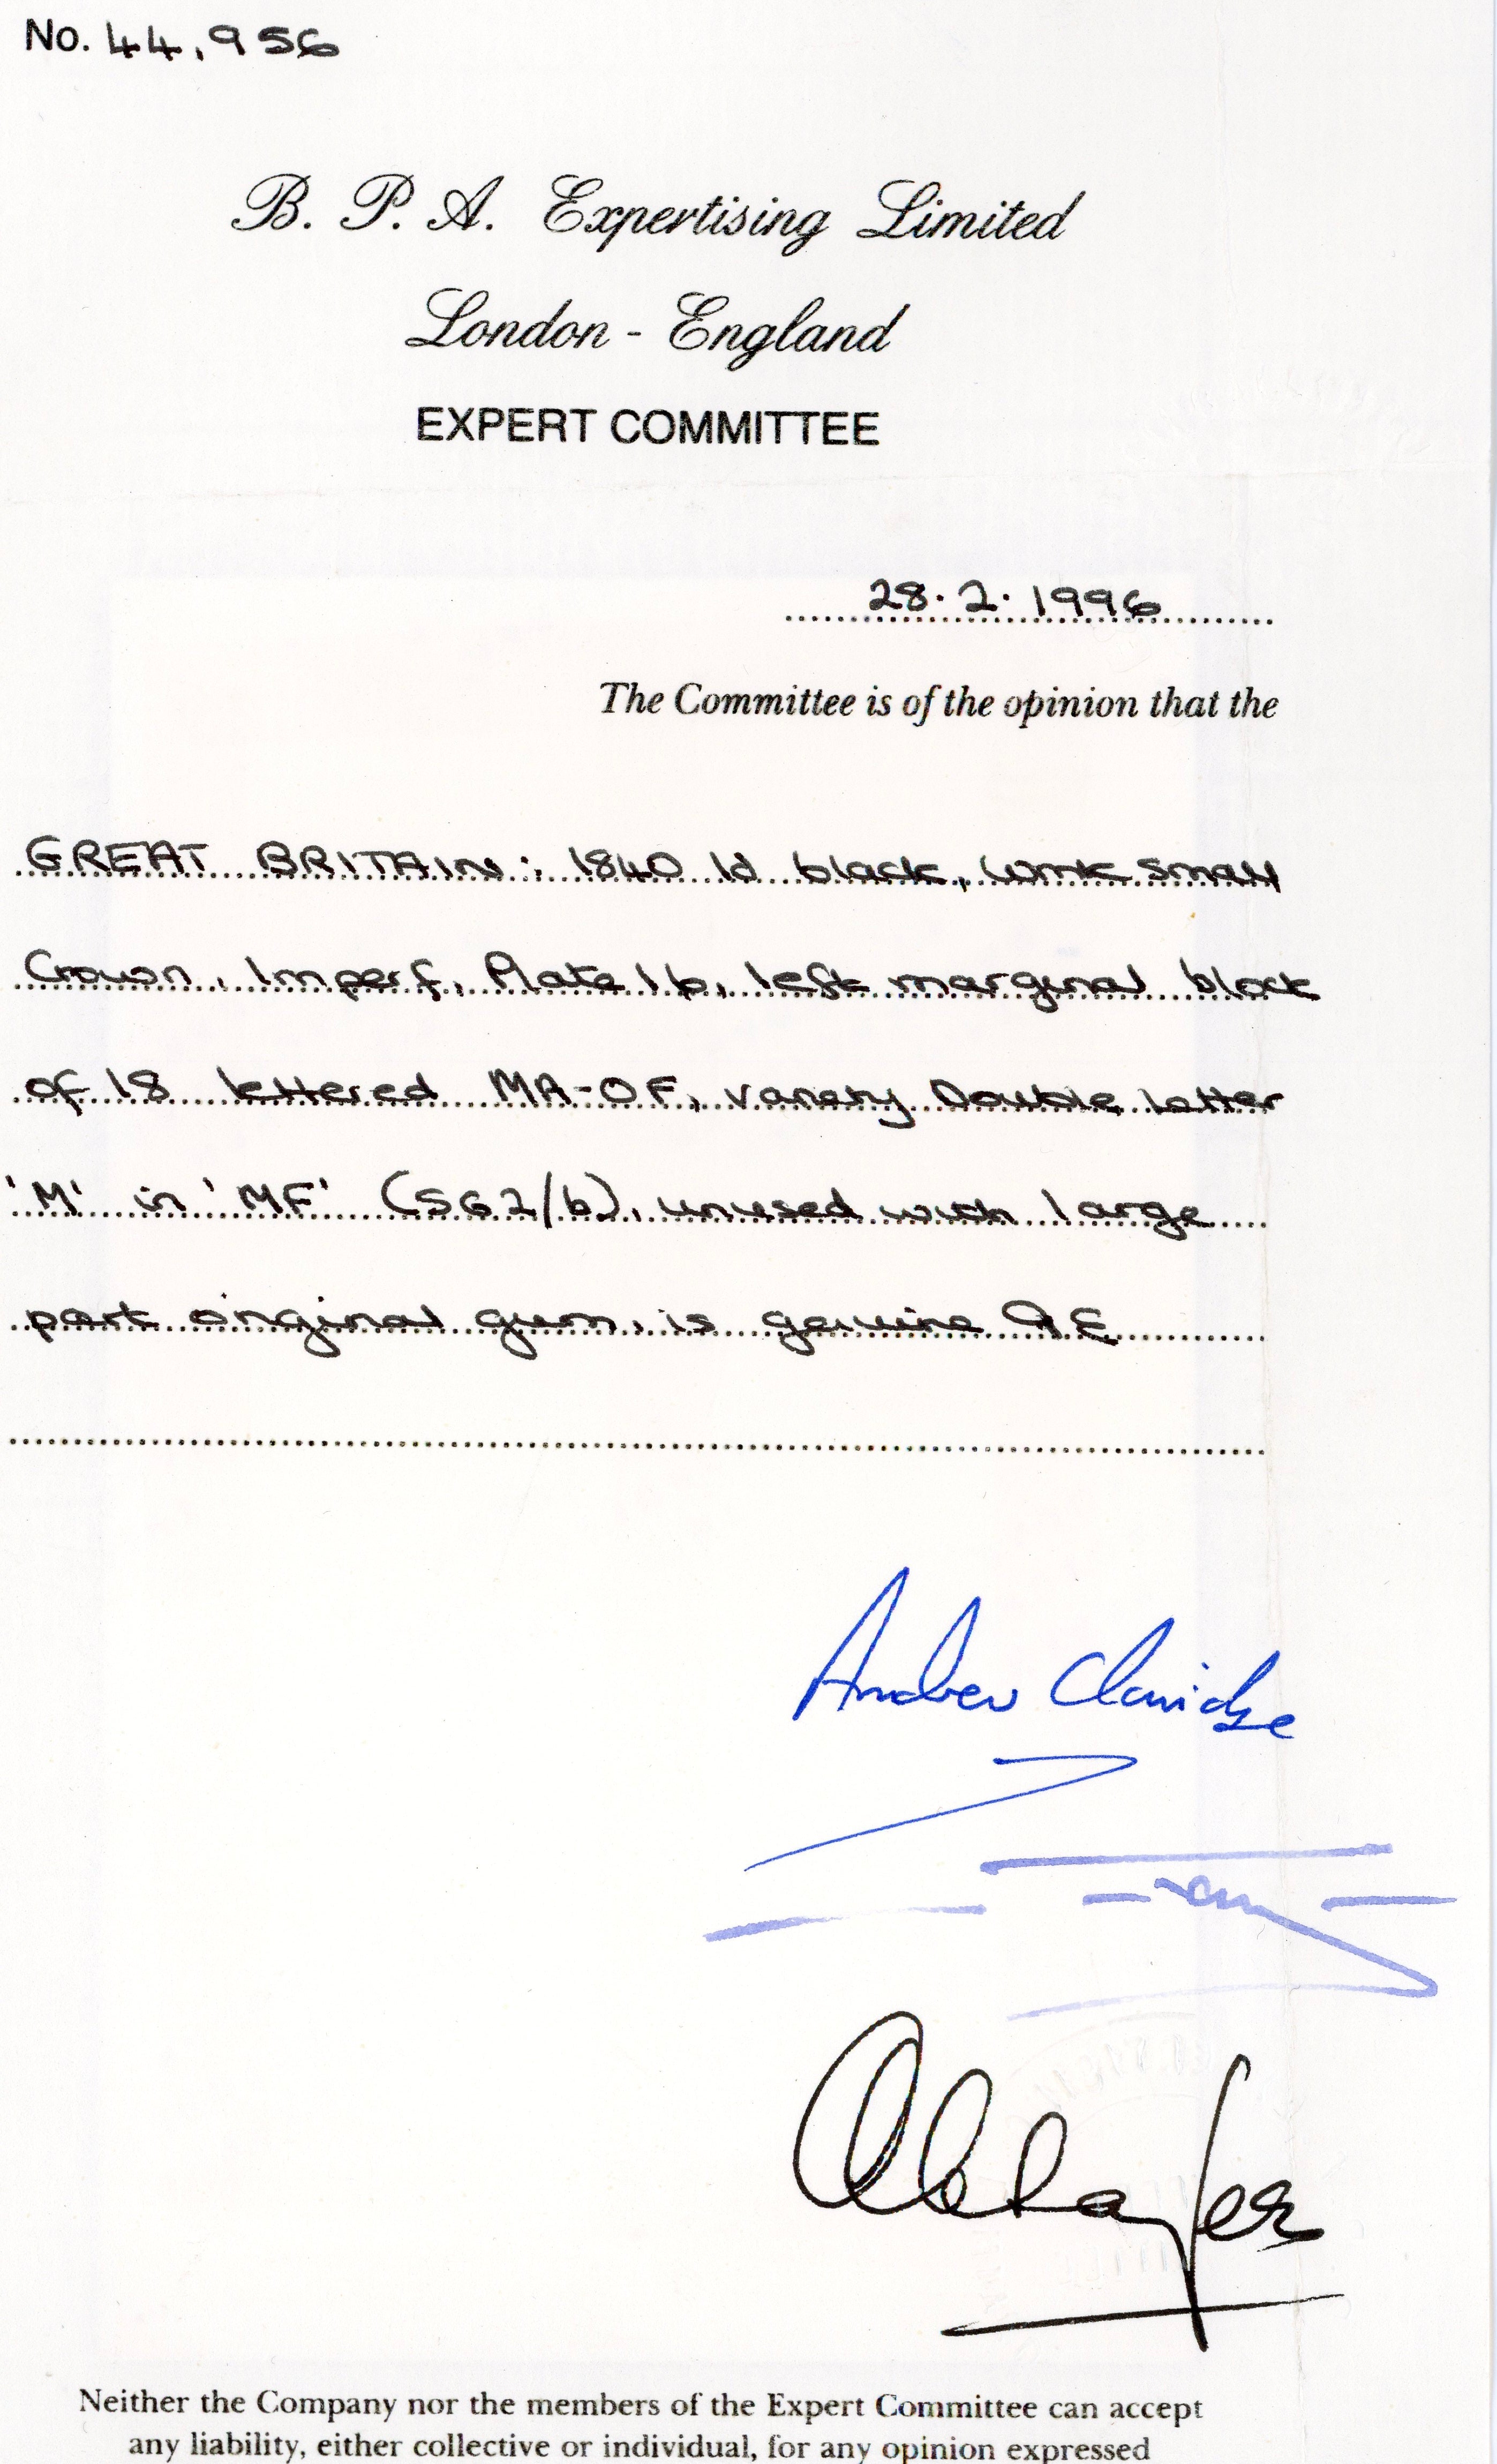 No. 44,956
B. P. A. Expertising Limited
London - England
EXPERT COMMITTEE
28.2.1996
The Committee is of the opinion that the
GREAT BRITAIN: 1840 1d black, wmk small
Crown, Imperf, Plate 1b, left marginal block
of 18 lettered MA-OF, variety Double letter
'M' in 'MF' (SG2/b), unused with large
part original gum, is genuine
Andrew Claridge
Neither the Company nor the members of the Expert Committee can accept
any liability, either collective or individual, for any opinion expressed